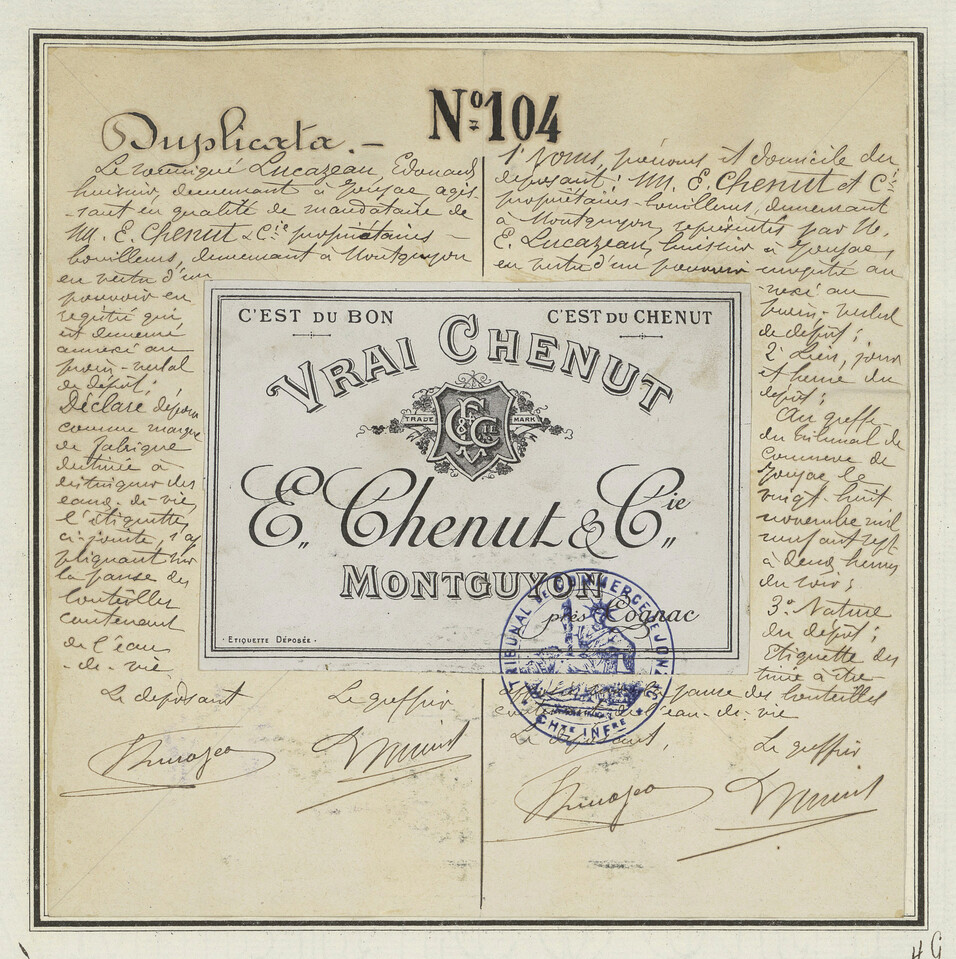 Nº 104
Duplicata. -
Le soussigné Lucazeau, Edouard
huissier, demeurant à Jonzac agis-
-sant en qualité de mandataire de
MM. E. Chenut & Cie propriétaires -
bouilleurs, demeurant à Montguyon
en vertu d'un
pouvoir en
registré qui
est demeuré
annexé au
procès-verbal
de dépôt;
Déclare déposer
comme marque
de fabrique
destinée à
distinguer des
eaux-de-vie,
l'étiquette
ci-jointe, s'ap
pliquant sur
la panse des
bouteilles
contenant
de l'eau
-de-vie
Le déposant
Le greffier
1º Noms, prénoms et domicile du
déposant: MM. E. Chenut et Cie
propriétaires-bouilleurs, demeurant
à Montguyon, représentés par M.
E. Lucazeau, huissier à Jonzac,
en vertu d'un pouvoir enregistré an
-nexé au
procès-verbal
de dépôt;
2º Lieu, jour
et heure du
dépôt;
Au greffe
du tribunal de
commerce de
Jonzac le
vingt huit
novembre mil
neuf cent sept
à deux heures
du soir;
3º Nature
du dépôt;
Etiquette des
tinée à être
panse des bouteilles
l'eau-de-vie
Le déposant,
Le greffier
C'EST DU BON
C'EST DU CHENUT
VRAI CHENUT
TRADE MARK
E. Chenut & Cie
MONTGUYON
près Cognac
· ETIQUETTE DÉPOSÉE ·
TRIBUNAL DE COMMERCE DE JONZAC
CHTE INFRE